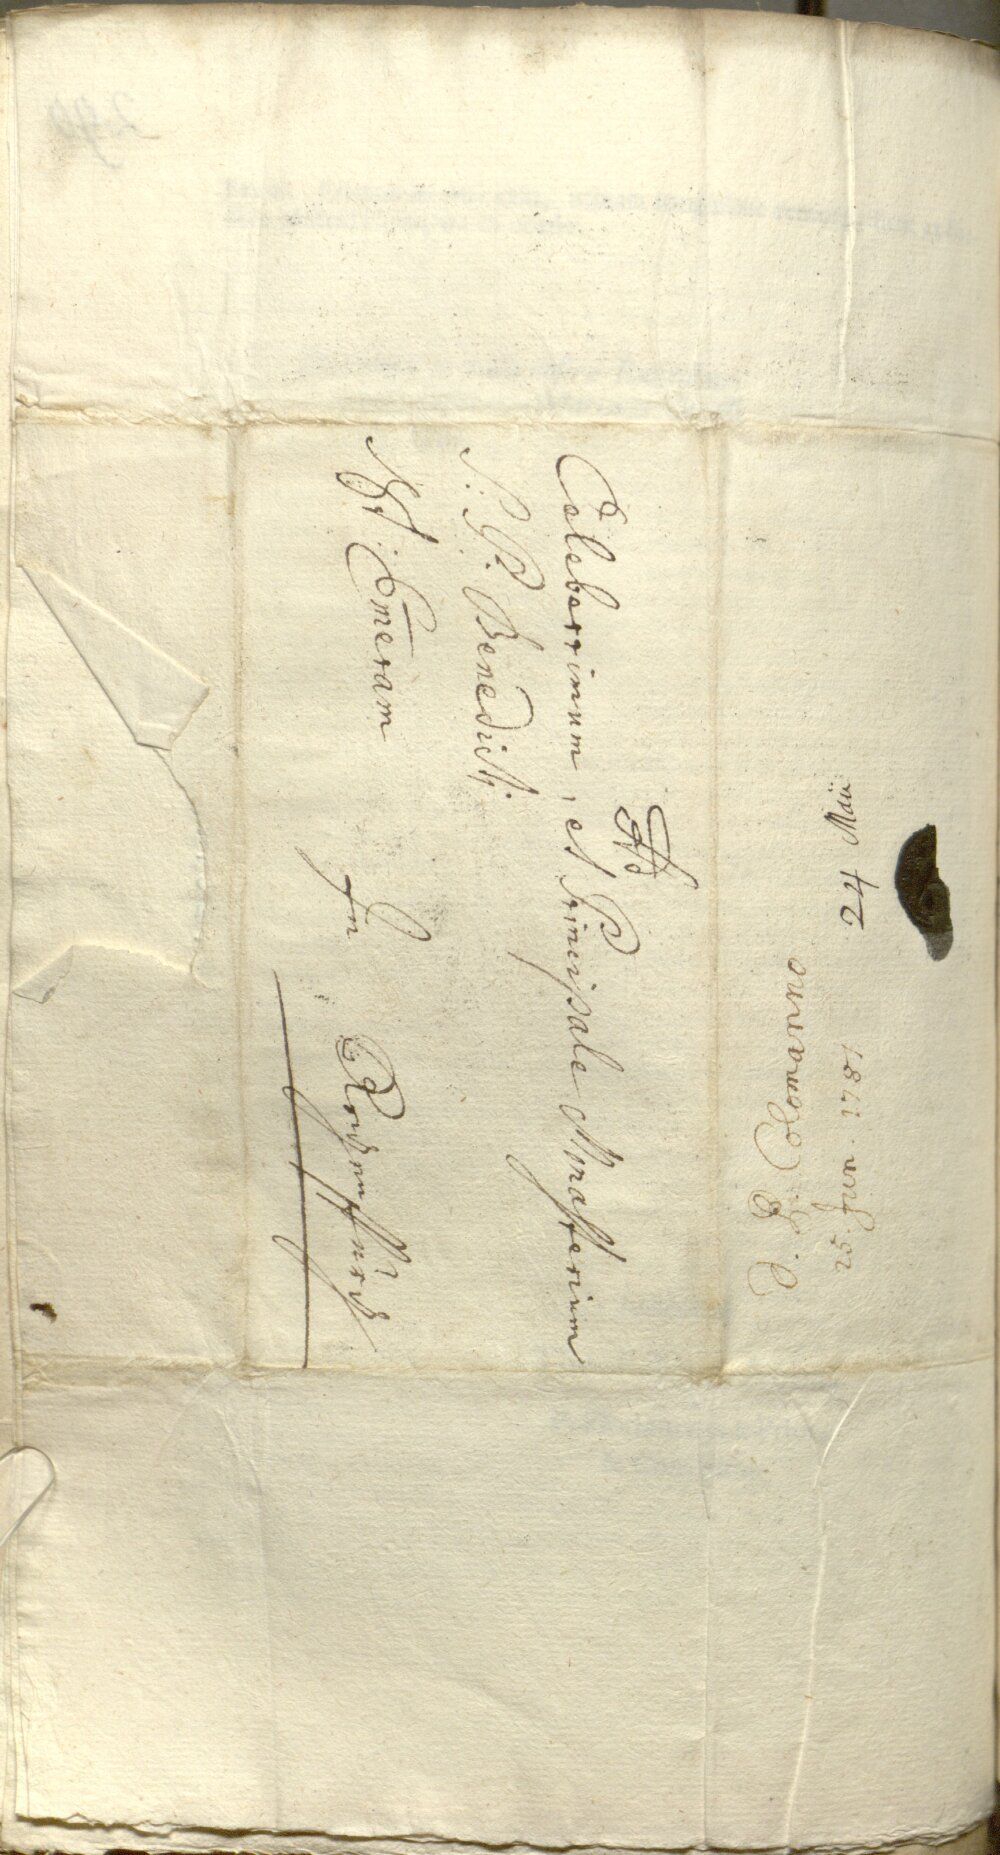 Ad
Celeberrimum, et Principale Monasterium
S. P. Benedicti
St. Emeram
In Regenspurg
24 Maii
25. Jun. 1781